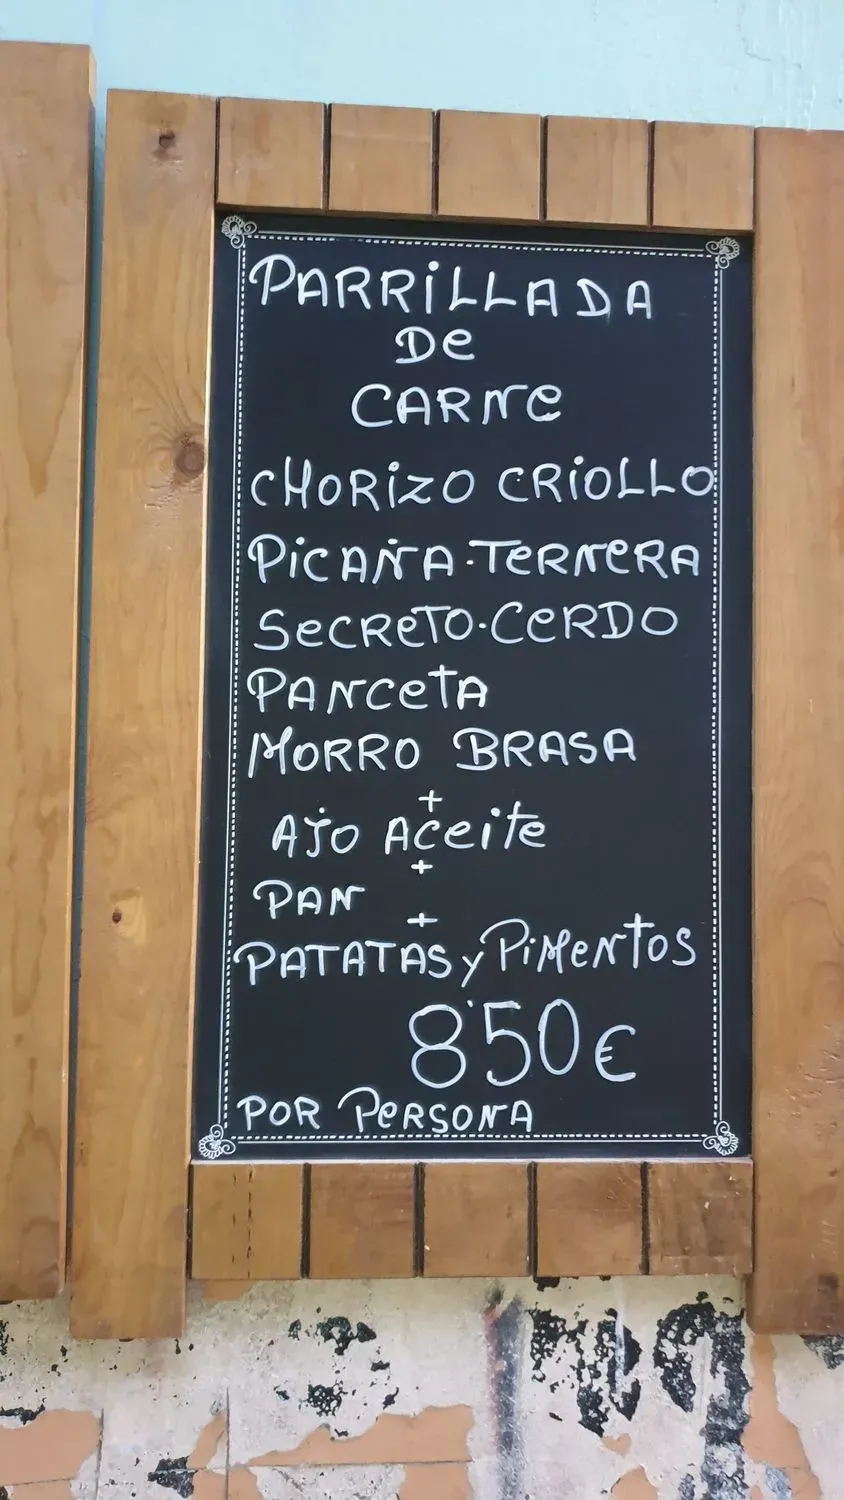 PARRiLLADA
De
CARNe
CHORiZO CRiOLLO
PiCAÑA·TERNeRA
SeCReTO·CeRDO
PANCeTA
MORRO BRASA
+
AJO Aceite
+
PAN
+
PATATAS y PiMeNtOS
8'50€
POR PeRSONA